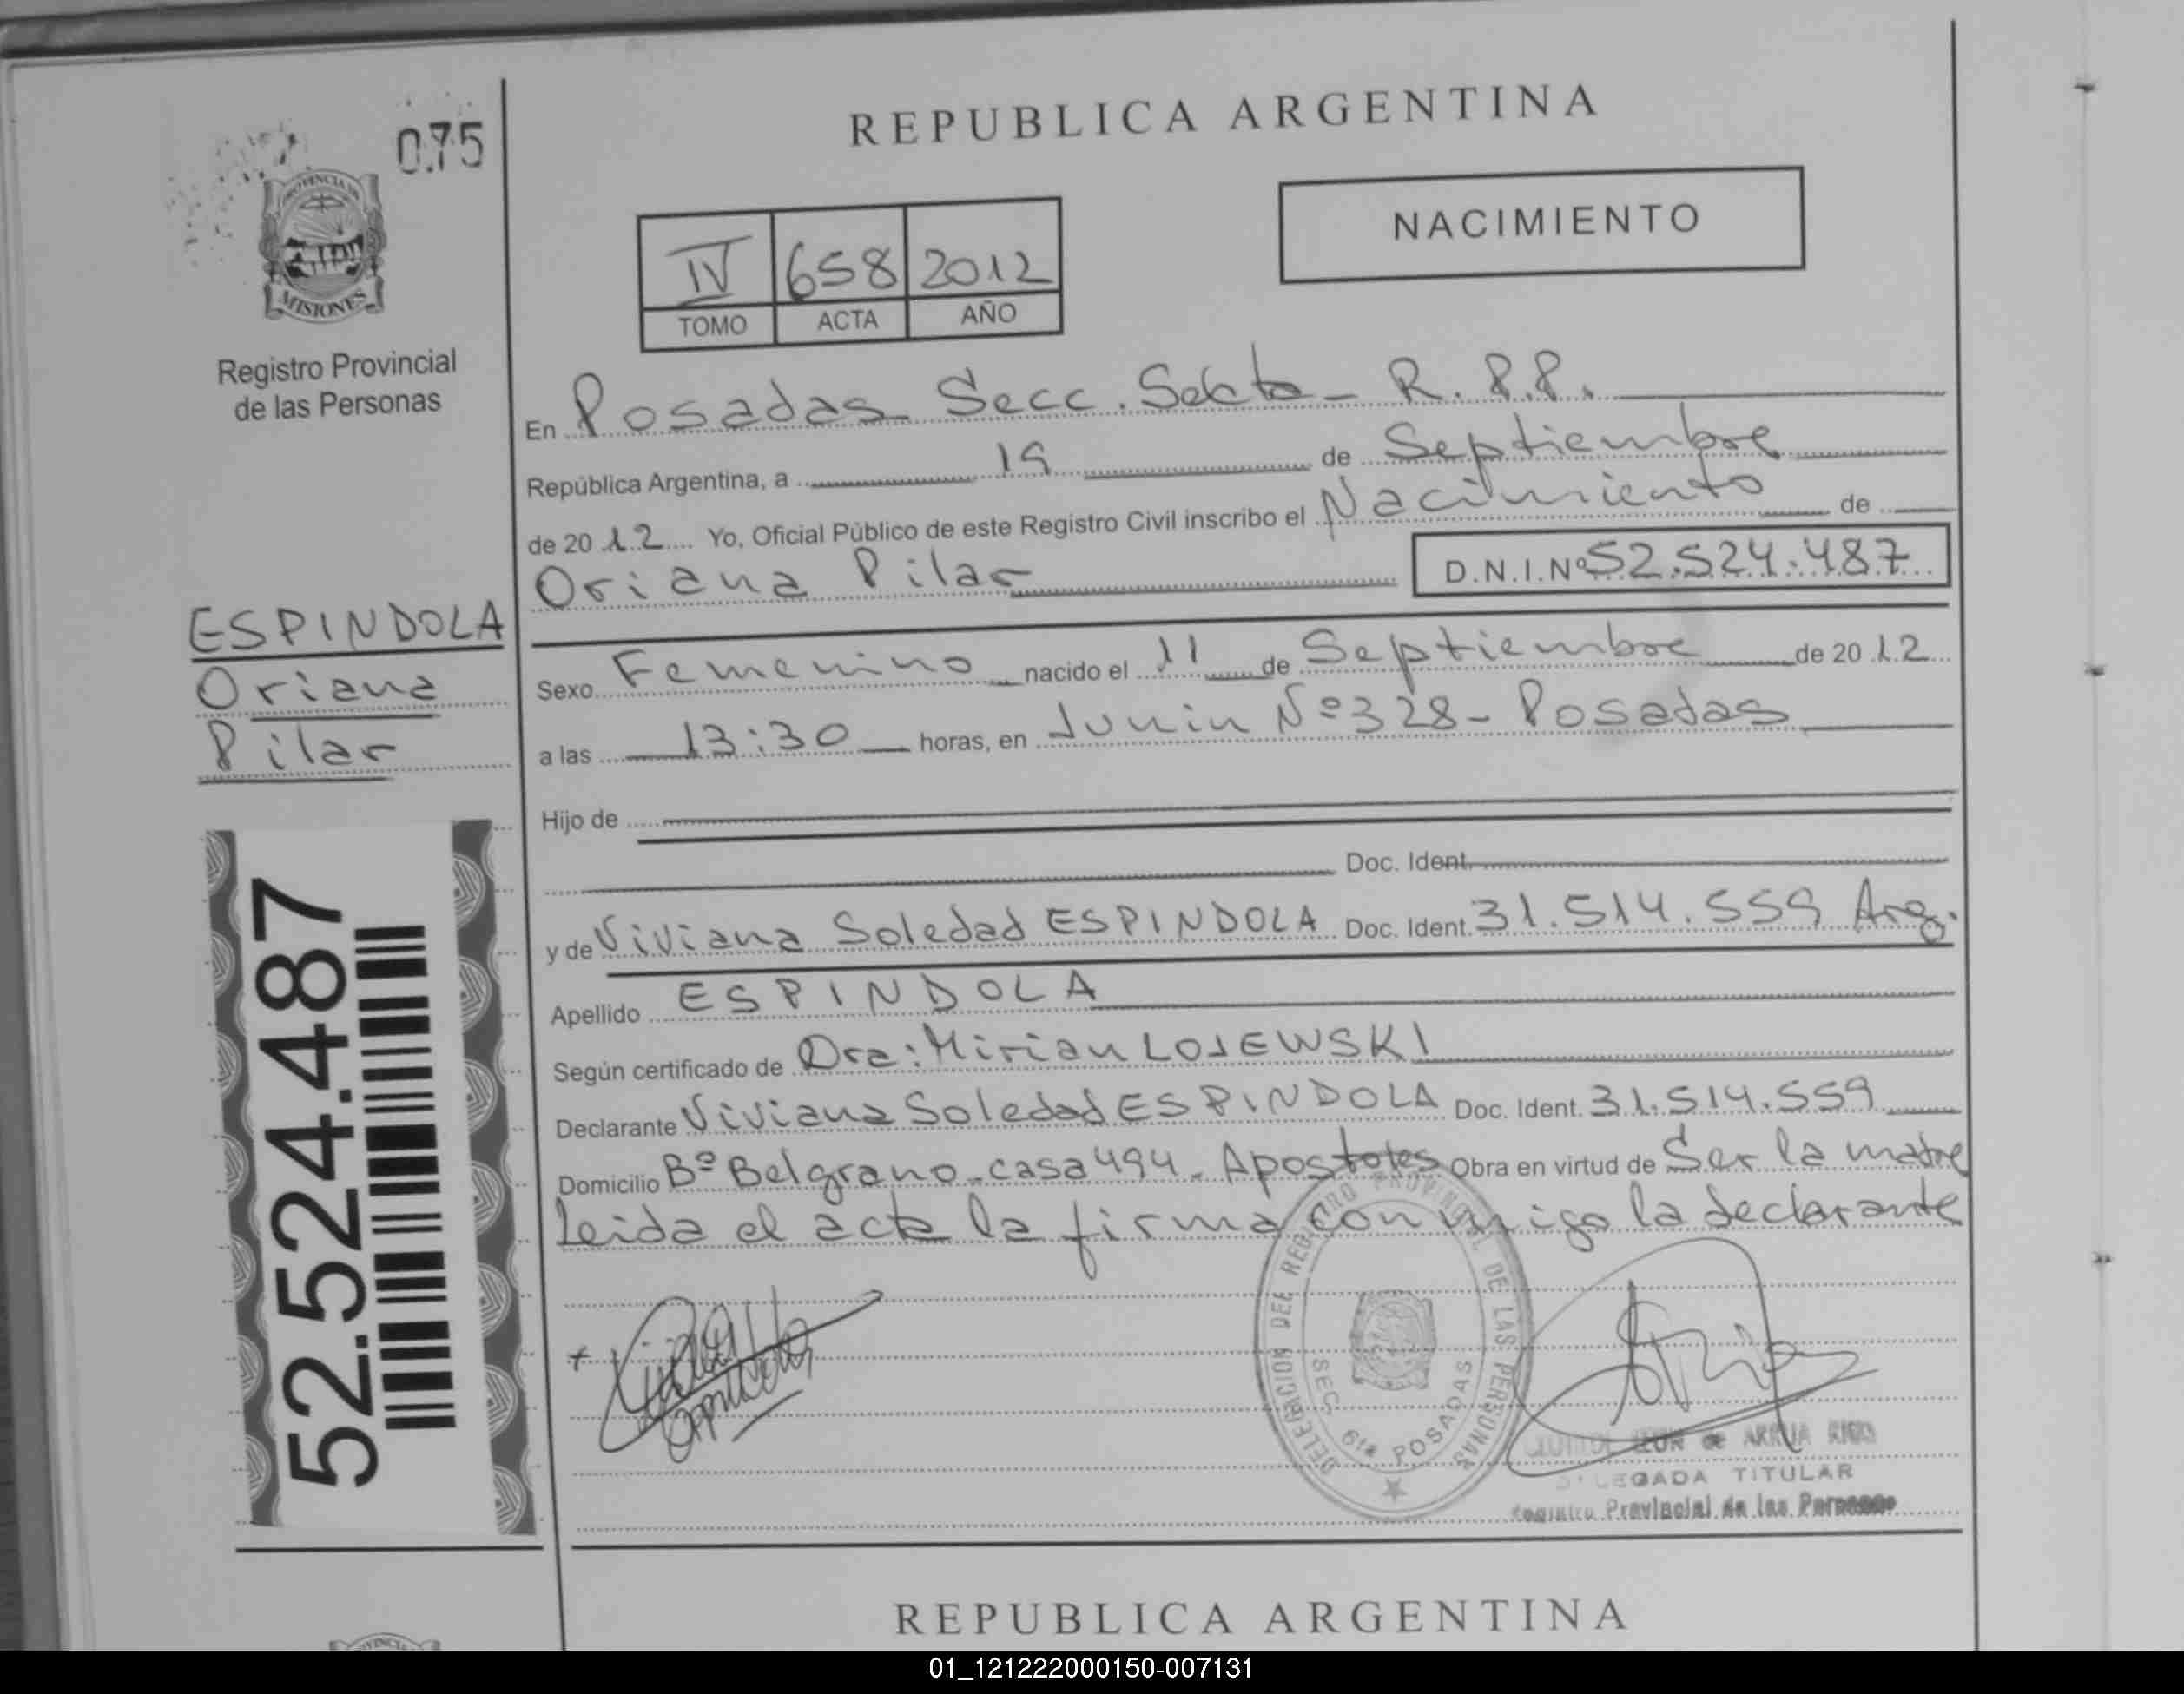 075
PROVINCIA DE
MISIONES
Registro Provincial
de las Personas
ESPINDOLA
Oriana
Pilar
52.524.487
REPUBLICA ARGENTINA
NACIMIENTO
IV 658 2012
TOMO ACTA AÑO
En Posadas Secc. Sexta - R.P.P.
República Argentina, a 19 de Septiembre
de 2012 Yo, Oficial Público de este Registro Civil inscribo el Nacimiento de
Oriana Pilar D.N.I.Nº 52.524.487
Sexo Femenino nacido el 11 de Septiembre de 2012
a las 13:30 horas, en Junin Nº 328 - Posadas
Hijo de
Doc. Ident.
y de Viviana Soledad ESPINDOLA Doc. Ident. 31.514.559 Arg.
Apellido ESPINDOLA
Según certificado de Dra: Mirian LOJEWSKI
Declarante Viviana Soledad ESPINDOLA Doc. Ident. 31.514.559
Domicilio Bº Belgrano - casa 494 - Apostoles Obra en virtud de Ser la madre
Leida el acta la firma conmigo la declarante
DELEGACION DEL REGISTRO PROVINCIAL DE LAS PERSONAS
SEC. 6ta POSADAS
de ARRUA
DELEGADA TITULAR
Registro Provincial de las Personas
REPUBLICA ARGENTINA
01_121222000150-007131